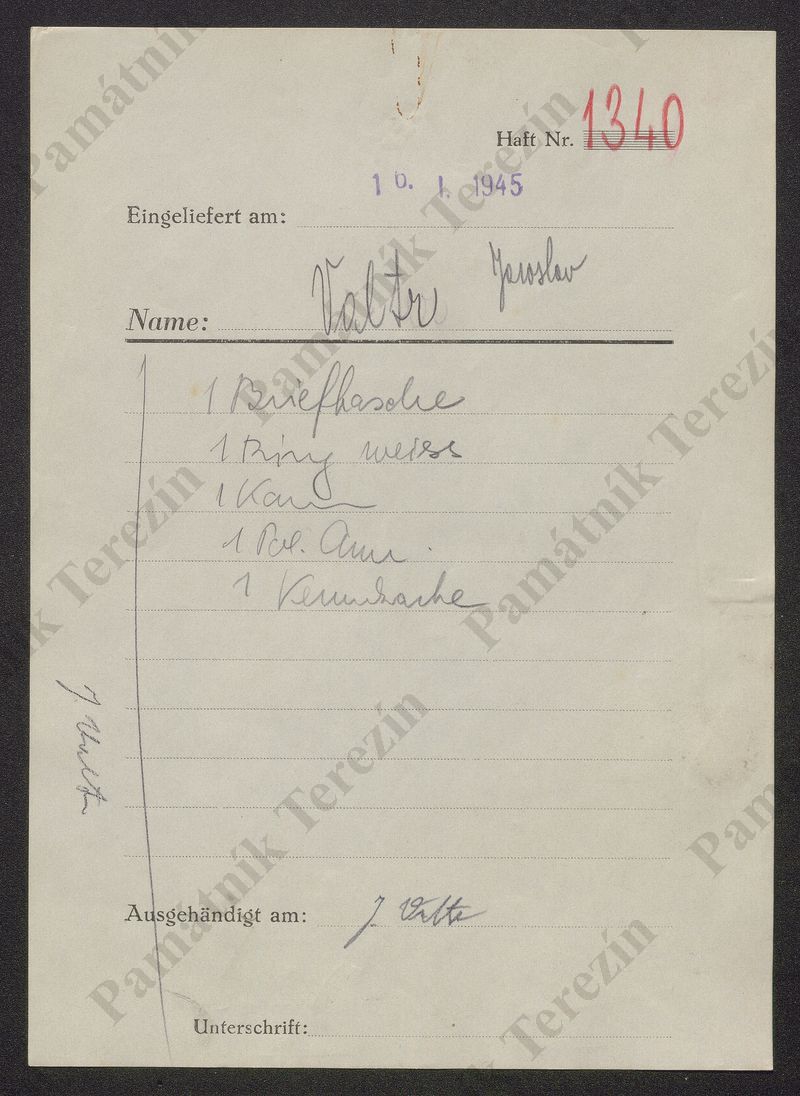 Haft Nr. 1340
10. 1. 1945
Eingeliefert am:
Name: Valtr Jaroslav
1 Brieftasche
1 Ring weiss
1 Kamm
1 Pol. Anm.
1 Kennkarte
J. Valtr
Ausgehändigt am: J. Valtr
Unterschrift:
Památník Terezín
Památník Terezín
Památník Terezín
Památník Terezín
Památník Terezín